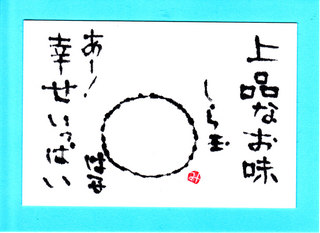 上品なお味
しら玉
あー!
幸せいっぱい
み